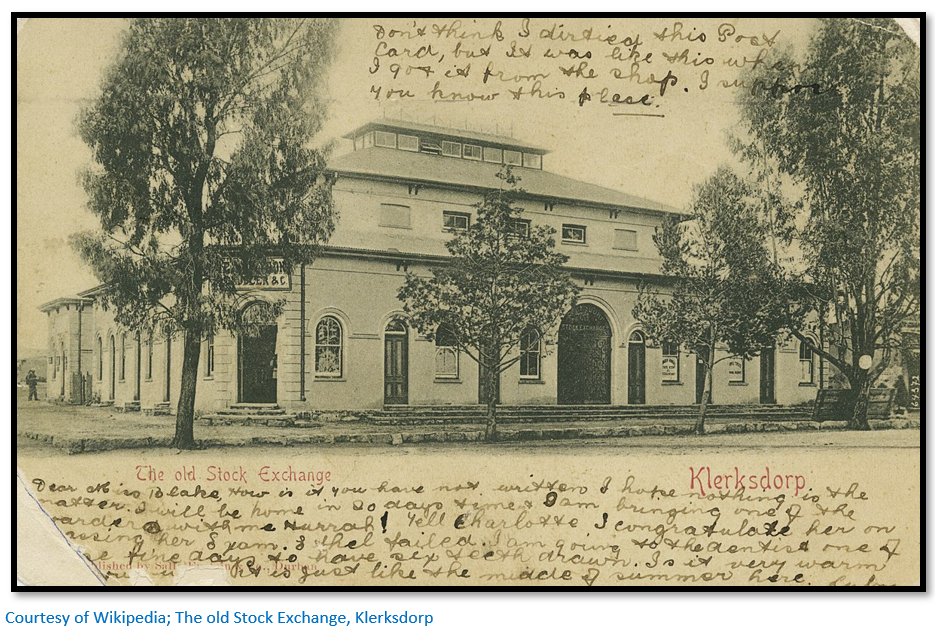 Don't think I dirtied this Post
Card, but It was like this when
I got it from the shop. I suppose
you know this place.
& C
STOCK EXCHANGE
64372
The old Stock Exchange
Klerksdorp.
Dear Miss Blake, How is it you have not written I hope nothing is the
matter. I will be home in 20 days time & am bringing one of the
with me Hurrah! Tell Charlotte I congratulate her on
her Exam. Ethel failed. I am going to the dentist one of
fine days to have six teeth drawn. Is it very warm
It is just like the middle of summer here.
Published by
Durban
Courtesy of Wikipedia; The old Stock Exchange, Klerksdorp